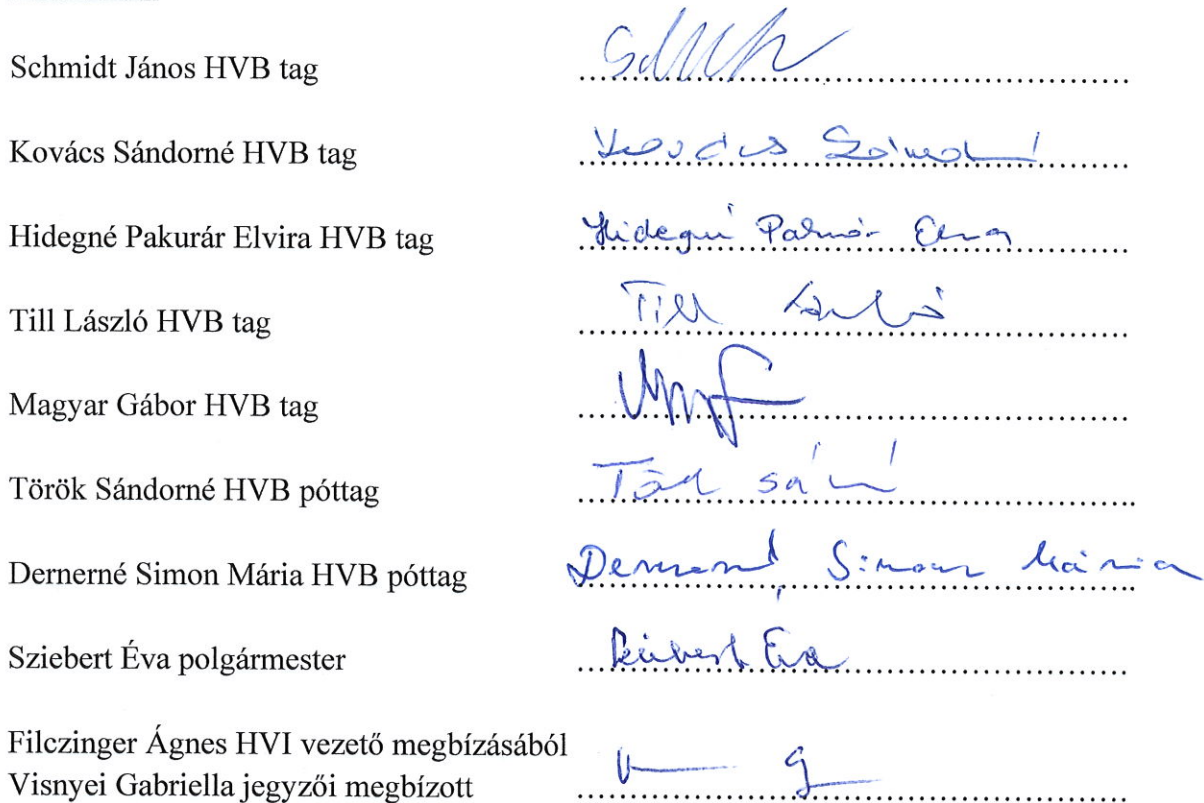 Schmidt János HVB tag
Kovács Sándorné HVB tag Kovács
Hidegné Pakurár Elvira HVB tag Hidegné
Till László HVB tag Till László
Magyar Gábor HVB tag
Török Sándorné HVB póttag
Dernerné Simon Mária HVB póttag Dernerné Simon Mária
Sziebert Éva polgármester Sziebert Éva
Filczinger Ágnes HVI vezető megbízásából
Visnyei Gabriella jegyzői megbízott